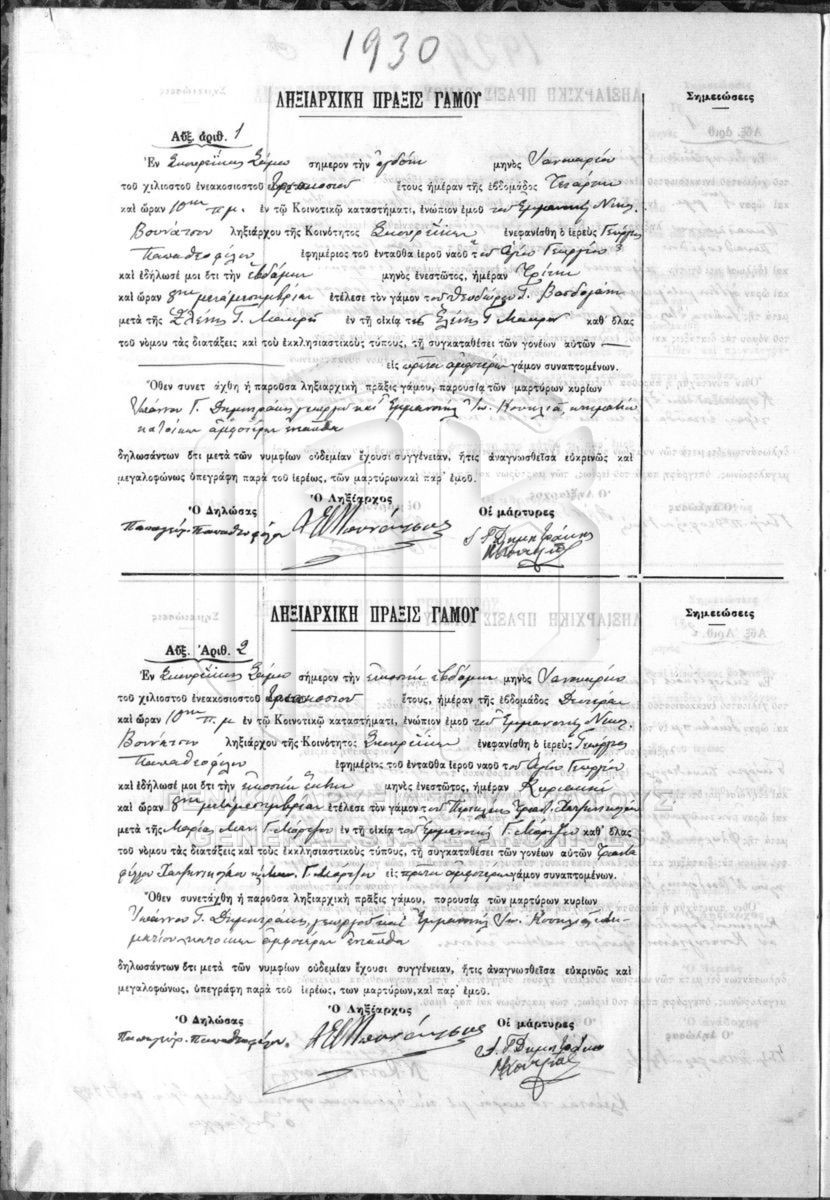 1930
ΛΗΞΙΑΡΧΙΚΗ ΠΡΑΞΙΣ ΓΑΜΟΥ
Σημειώσεις
Αὔξ. ἀριθ. 1
Ἐν Σκουρέϊκης Σάμου σημερον τὴν ὀγδόην μηνὸς Ἰανουαρίου
τοῦ χιλιοστοῦ ἐνεακοσιοστοῦ τριακοσιοῦ ἔτους ἡμέραν τῆς ἑβδομάδος Τετάρτη
καὶ ὥραν 10ην π.μ. ἐν τῷ Κοινοτικῷ καταστήματι, ἐνώπιον ἐμοῦ τοῦ Ἐμμανουὴλ Νικ.
ληξιάρχου τῆς Κοινότητος Σκουρέϊκων ἐνεφανίσθη ὁ ἱερεὺς Γεώργιος
Παπαθεοφίλου ἐφημέριος τοῦ ἐνταῦθα ἱεροῦ ναοῦ τοῦ Ἁγίου Γεωργίου
καὶ ἐδήλωσέ μοι ὅτι τὴν ἑβδόμην μηνὸς ἐνεστῶτος, ἡμέραν Τρίτην
καὶ ὥραν μεταμεσημβρίαν ἐτέλεσε τὸν γάμον τοῦ Θεοδώρου Γ.
μετὰ τῆς Ἑλένης Γ. Μακρῆ ἐν τῇ οἰκίᾳ τῆς Ἑλένης Γ. Μακρῆ καθ᾽ ὅλας
τοῦ νόμου τὰς διατάξεις καὶ τοῦ ἐκκλησιαστικοὺς τύπους, τῇ συγκαταθέσει τῶν γονέων αὐτῶν
εἰς πρῶτον ἀμφοτέρων γάμον συναπτομένων.
Ὅθεν συνετάχθη ἡ παροῦσα ληξιαρχικὴ πρᾶξις γάμου, παρουσίᾳ τῶν μαρτύρων κυρίων
Ἰωάννου Γ. Δημητράκη γεωργοῦ καὶ Ἐμμανουὴλ Ἰω. κτηματίου
κατοίκων ἀμφοτέρων ἐνταῦθα
δηλωσάντων ὅτι μετὰ τῶν νυμφίων οὐδεμίαν ἔχουσι συγγένειαν, ἥτις ἀναγνωσθεῖσα εὐκρινῶς καὶ
μεγαλοφώνως ὑπεγράφη παρὰ τοῦ ἱερέως, τῶν μαρτύρων καὶ παρ᾽ ἐμοῦ.
Ὁ Δηλώσας Ὁ Ληξίαρχος Οἱ μάρτυρες
Παπαγεώρ. Παπαθεοφίλου Ι. Γ. Δημητράκης
ΛΗΞΙΑΡΧΙΚΗ ΠΡΑΞΙΣ ΓΑΜΟΥ
Σημειώσεις
Αὔξ. Ἀριθ. 2
Ἐν Σκουρέϊκης Σάμου σήμερον τὴν εἰκοστὴν ἑβδόμην μηνὸς Ἰανουαρίου
τοῦ χιλιοστοῦ ἐνεακοσιοστοῦ τριακοσιοῦ ἔτους, ἡμέραν τῆς ἑβδομάδος Δευτέρα
καὶ ὥραν 10ην π.μ ἐν τῷ Κοινοτικῷ καταστήματι, ἐνώπιον ἐμοῦ τοῦ Ἐμμανουὴλ Νικ.
ληξιάρχου τῆς Κοινότητος Σκουρέϊκων ἐνεφανίσθη ὁ ἱερεὺς Γεώργιος
Παπαθεοφίλου ἐφημέριος τοῦ ἐνταῦθα ἱεροῦ ναοῦ τοῦ Ἁγίου Γεωργίου
καὶ ἐδήλωσέ μοι ὅτι τὴν εἰκοστὴν ἕκτην μηνὸς ἐνεστῶτος, ἡμέραν Κυριακὴν
καὶ ὥραν μεταμεσημβρίαν ἐτέλεσε τὸν γάμον τοῦ Περικλέους
μετὰ τῆς Μαρίας Μαν. Γ. ἐν τῇ οἰκίᾳ τοῦ Ἐμμανουὴλ Γ. καθ᾽ ὅλας
τοῦ νόμου τὰς διατάξεις καὶ τοὺς ἐκκλησιαστικοὺς τύπους, τῇ συγκαταθέσει τῶν γονέων αὐτῶν
εἰς πρῶτον ἀμφοτέρων γάμον συναπτομένων.
Ὅθεν συνετάχθη ἡ παροῦσα ληξιαρχικὴ πρᾶξις γάμου, παρουσίᾳ τῶν μαρτύρων κυρίων
Ἰωάννου Γ. Δημητράκη, γεωργοῦ καὶ Ἐμμανουὴλ Ἰω. κτη-
ματίου κατοίκων ἀμφοτέρων ἐνταῦθα
δηλωσάντων ὅτι μετὰ τῶν νυμφίων οὐδεμίαν ἔχουσι συγγένειαν, ἥτις ἀναγνωσθεῖσα εὐκρινῶς καὶ
μεγαλοφώνως, ὑπεγράφη παρὰ τοῦ ἱερέως, των μαρτύρων, καὶ παρ᾽ ἐμοῦ.
Ὁ Δηλώσας Ὁ Ληξίαρχος Οἱ μάρτυρες
Παπαγεώρ. Παπαθεοφίλου. Ι. Γ. Δημητράκης